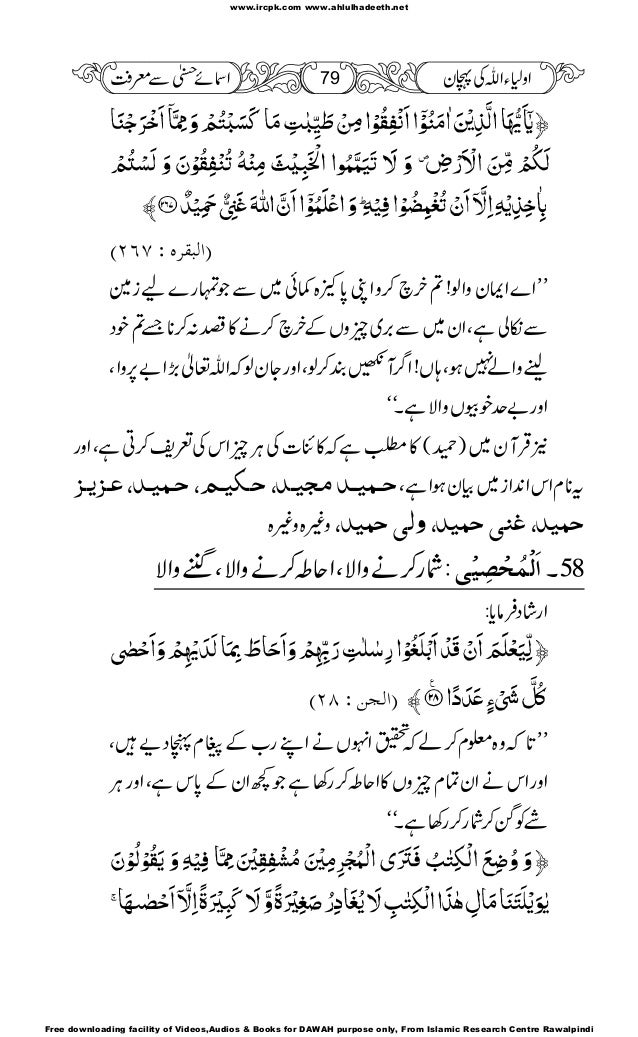 www.ircpk.com www.ahlulhadeeth.net
اولیاء اللہ کی پہچان 79 اسمائے حسنیٰ سے معرفت
﴿ يٰٓاَيُّهَا الَّذِيْنَ اٰمَنُوْٓا اَنْفِقُوْا مِنْ طَيِّبٰتِ مَا كَسَبْتُمْ وَ مِمَّآ اَخْرَجْنَا
لَكُمْ مِّنَ الْاَرْضِ ۪ وَ لَا تَيَمَّمُوا الْخَبِيْثَ مِنْهُ تُنْفِقُوْنَ وَ لَسْتُمْ
بِاٰخِذِيْهِ اِلَّآ اَنْ تُغْمِضُوْا فِيْهِ ؕ وَ اعْلَمُوْٓا اَنَّ اللّٰهَ غَنِيٌّ حَمِيْدٌ ﴿۲۶۷﴾ ﴾
(البقرہ : ۲۶۷)
’’اے ایمان والو! تم خرچ کرو اپنی پاکیزہ کمائی میں سے جو تمہارے لیے زمین
سے نکالی ہے، ان میں سے بری چیزوں کے خرچ کرنے کا قصد نہ کرنا جسے تم خود
لینے والے نہیں ہو، ہاں! اگر آنکھیں بند کر لو، اور جان لو کہ اللہ تعالیٰ بڑا بے پروا،
اور بے حد خوبیوں والا ہے۔‘‘
نیز قرآن میں (حمید) کا مطلب ہے کہ کائنات کی ہر چیز اس کی تعریف کرتی ہے، اور
یہ نام اس انداز میں بیان ہوا ہے، حمید مجید، حکیم، حمید، عزیز
حمید، غنی حمید، ولی حمید، وغیرہ وغیرہ
58۔ اَلْمُحْصِيْ : شمار کرنے والا، احاطہ کرنے والا، گننے والا
ارشاد فرمایا:
﴿ لِّيَعْلَمَ اَنْ قَدْ اَبْلَغُوْا رِسٰلٰتِ رَبِّهِمْ وَاَحَاطَ بِمَا لَدَيْهِمْ وَاَحْصٰى
كُلَّ شَيْءٍ عَدَدًا ﴿۲۸﴾ ﴾ (الجن : ۲۸)
’’تاکہ وہ معلوم کر لے کہ تحقیق انہوں نے اپنے رب کے پیغام پہنچا دیے ہیں،
اور اس نے ان تمام چیزوں کا احاطہ کر رکھا ہے جو کچھ ان کے پاس ہے، اور ہر
شے کو گن کر شمار کر رکھا ہے۔‘‘
﴿ وَ وُضِعَ الْكِتٰبُ فَتَرَى الْمُجْرِمِيْنَ مُشْفِقِيْنَ مِمَّا فِيْهِ وَ يَقُوْلُوْنَ
يٰوَيْلَتَنَا مَالِ هٰذَا الْكِتٰبِ لَا يُغَادِرُ صَغِيْرَةً وَّ لَا كَبِيْرَةً اِلَّآ اَحْصٰىهَا ۚ
Free downloading facility of Videos,Audios & Books for DAWAH purpose only, From Islamic Research Centre Rawalpindi